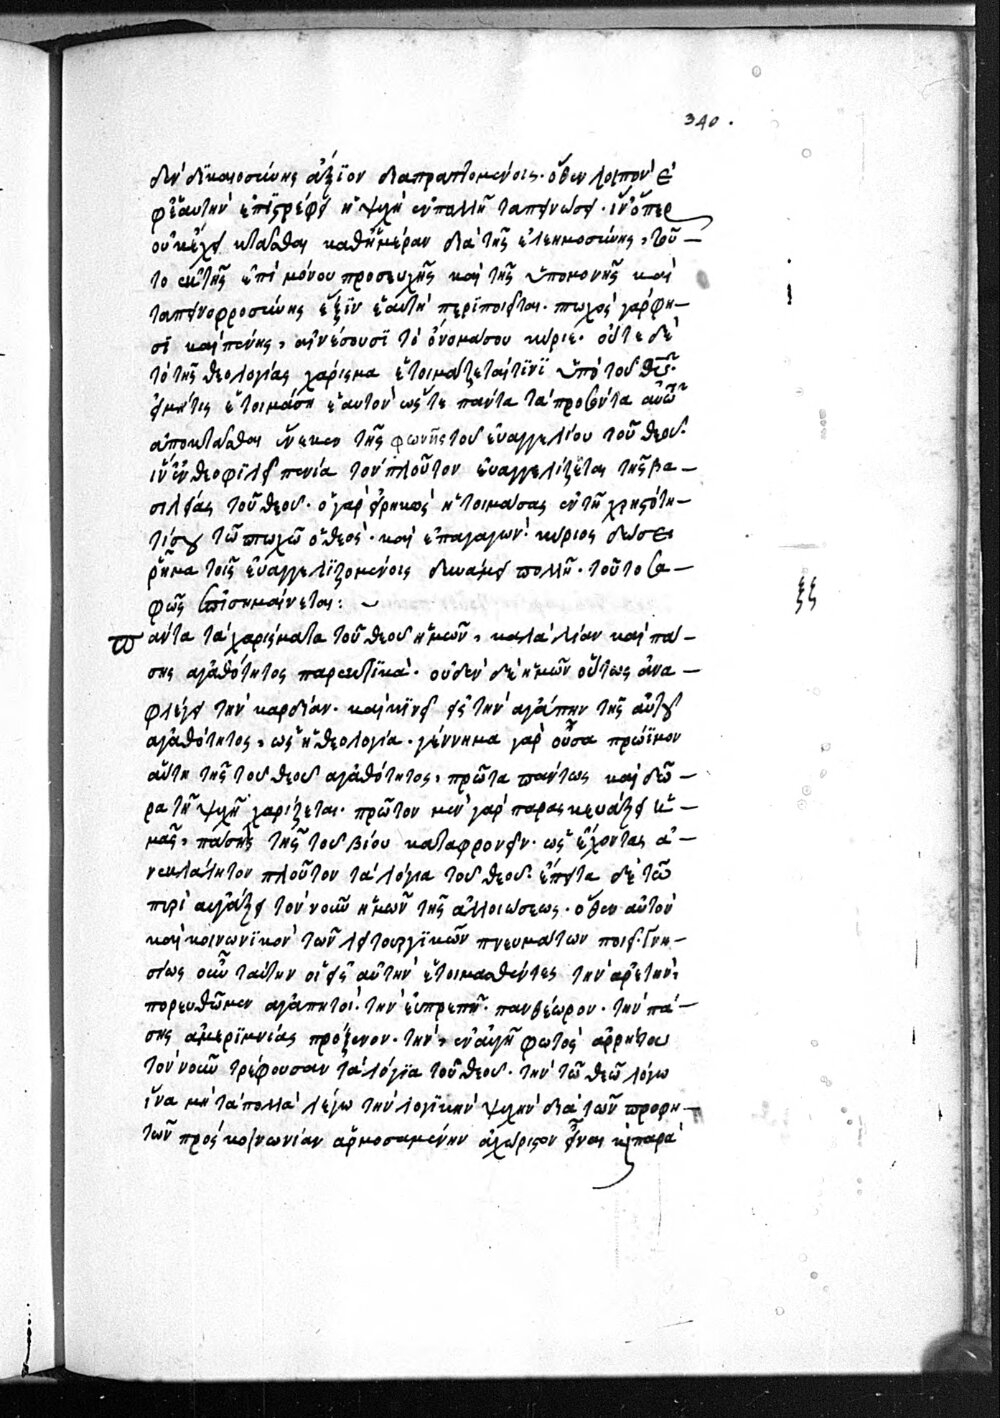 340.
δὲν δικαιοσύνης ἄξιον διαπραττομένοις. ὅθεν λοιπὸν ἐ
φ' ἑαυτὴν ἐπιστρέφει ἡ ψυχὴ ἐν πολλῇ ταπεινώσει. ἵν' ὅπερ
οὐκ ἔχει κτᾶσθαι καθ' ἡμέραν διὰ τῆς ἐλεημοσύνης, τοῦ-
το ἐκ τῆς ἐπιμόνου προσευχῆς καὶ τῆς ὑπομονῆς καὶ
ταπεινοφροσύνης ἕξειν ἑαυτῇ περιποιεῖται. πτωχὸς γάρ φη-
σι καὶ πένης, αἰνέσουσι τὸ ὄνομά σου κύριε. οὔτε δὲ
τὸ τῆς θεολογίας χάρισμα ἑτοιμάζεταί τινι ὑπὸ τοῦ θεοῦ.
εἰ μή τις ἑτοιμάσῃ ἑαυτὸν ὥστε πάντα τὰ προσόντα αὐτῷ
ἀποκτᾶσθαι ἕνεκεν τῆς φωνῆς τοῦ εὐαγγελίου τοῦ θεοῦ.
ἵν' ἐν θεοφιλεῖ πενίᾳ τὸν πλοῦτον εὐαγγελίζεται τῆς βα-
σιλείας τοῦ θεοῦ. ὁ γὰρ εἰρηκὼς ἡτοίμασας ἐν τῇ χρηστότη-
τί σου τῷ πτωχῷ ὁ θεός. καὶ ἐπαγαγών. κύριος δώσει
ῥῆμα τοῖς εὐαγγελιζομένοις δυνάμει πολλῇ. τοῦτο σα-
φῶς ἐπισημαίνεται:
Πάντα τὰ χαρίσματα τοῦ θεοῦ ἡμῶν, καλὰ λίαν καὶ πά-
σης ἀγαθότητος παρεκτικά. οὐδὲν δὲ ἡμῶν οὕτως ἀνα-
φλέγει τὴν καρδίαν. καὶ κινεῖ εἰς τὴν ἀγάπην τῆς αὐτοῦ
ἀγαθότητος, ὡς ἡ θεολογία. γέννημα γὰρ οὖσα πρώϊμον
αὕτη τῆς τοῦ θεοῦ ἀγαθότητος, πρῶτα πάντως καὶ δῶ-
ρα τῇ ψυχῇ χαρίζεται. πρῶτον μὲν γὰρ παρασκευάζει ἡ-
μᾶς, πάσης τῆς τοῦ βίου καταφρονεῖν. ὡς ἔχοντας ἀ-
νεκλάλητον πλοῦτον τὰ λόγια τοῦ θεοῦ. ἔπειτα δὲ τῷ
πυρὶ αὐγάζει τὸν νοῦν ἡμῶν τῆς ἀλλοιώσεως. ὅθεν αὐτὸν
καὶ κοινωνικὸν τῶν λειτουργικῶν πνευμάτων ποιεῖ. γνη-
σίως οὖν ταύτην οἱ εἰς αὐτὴν ἑτοιμασθέντες τὴν ἀρετὴν,
πορευθῶμεν ἀγαπητοί. τὴν εὐπρεπῆ. πανθέωρον. τὴν πά-
σης ἀμεριμνίας πρόξενον. τὴν, ἐν αὐγῇ φωτὸς ἀρρήτου
τὸν νοῦν τρέφουσαν τὰ λόγια τοῦ θεοῦ. τὴν τῷ θεῷ λόγῳ
ἵνα μὴ τὰ πολλὰ λέγω τὴν λογικὴν ψυχὴν διὰ τῶν προφη-
τῶν πρὸς κοινωνίαν ἁρμοσαμένην ἀχώριστον εἶναι καὶ παρὰ